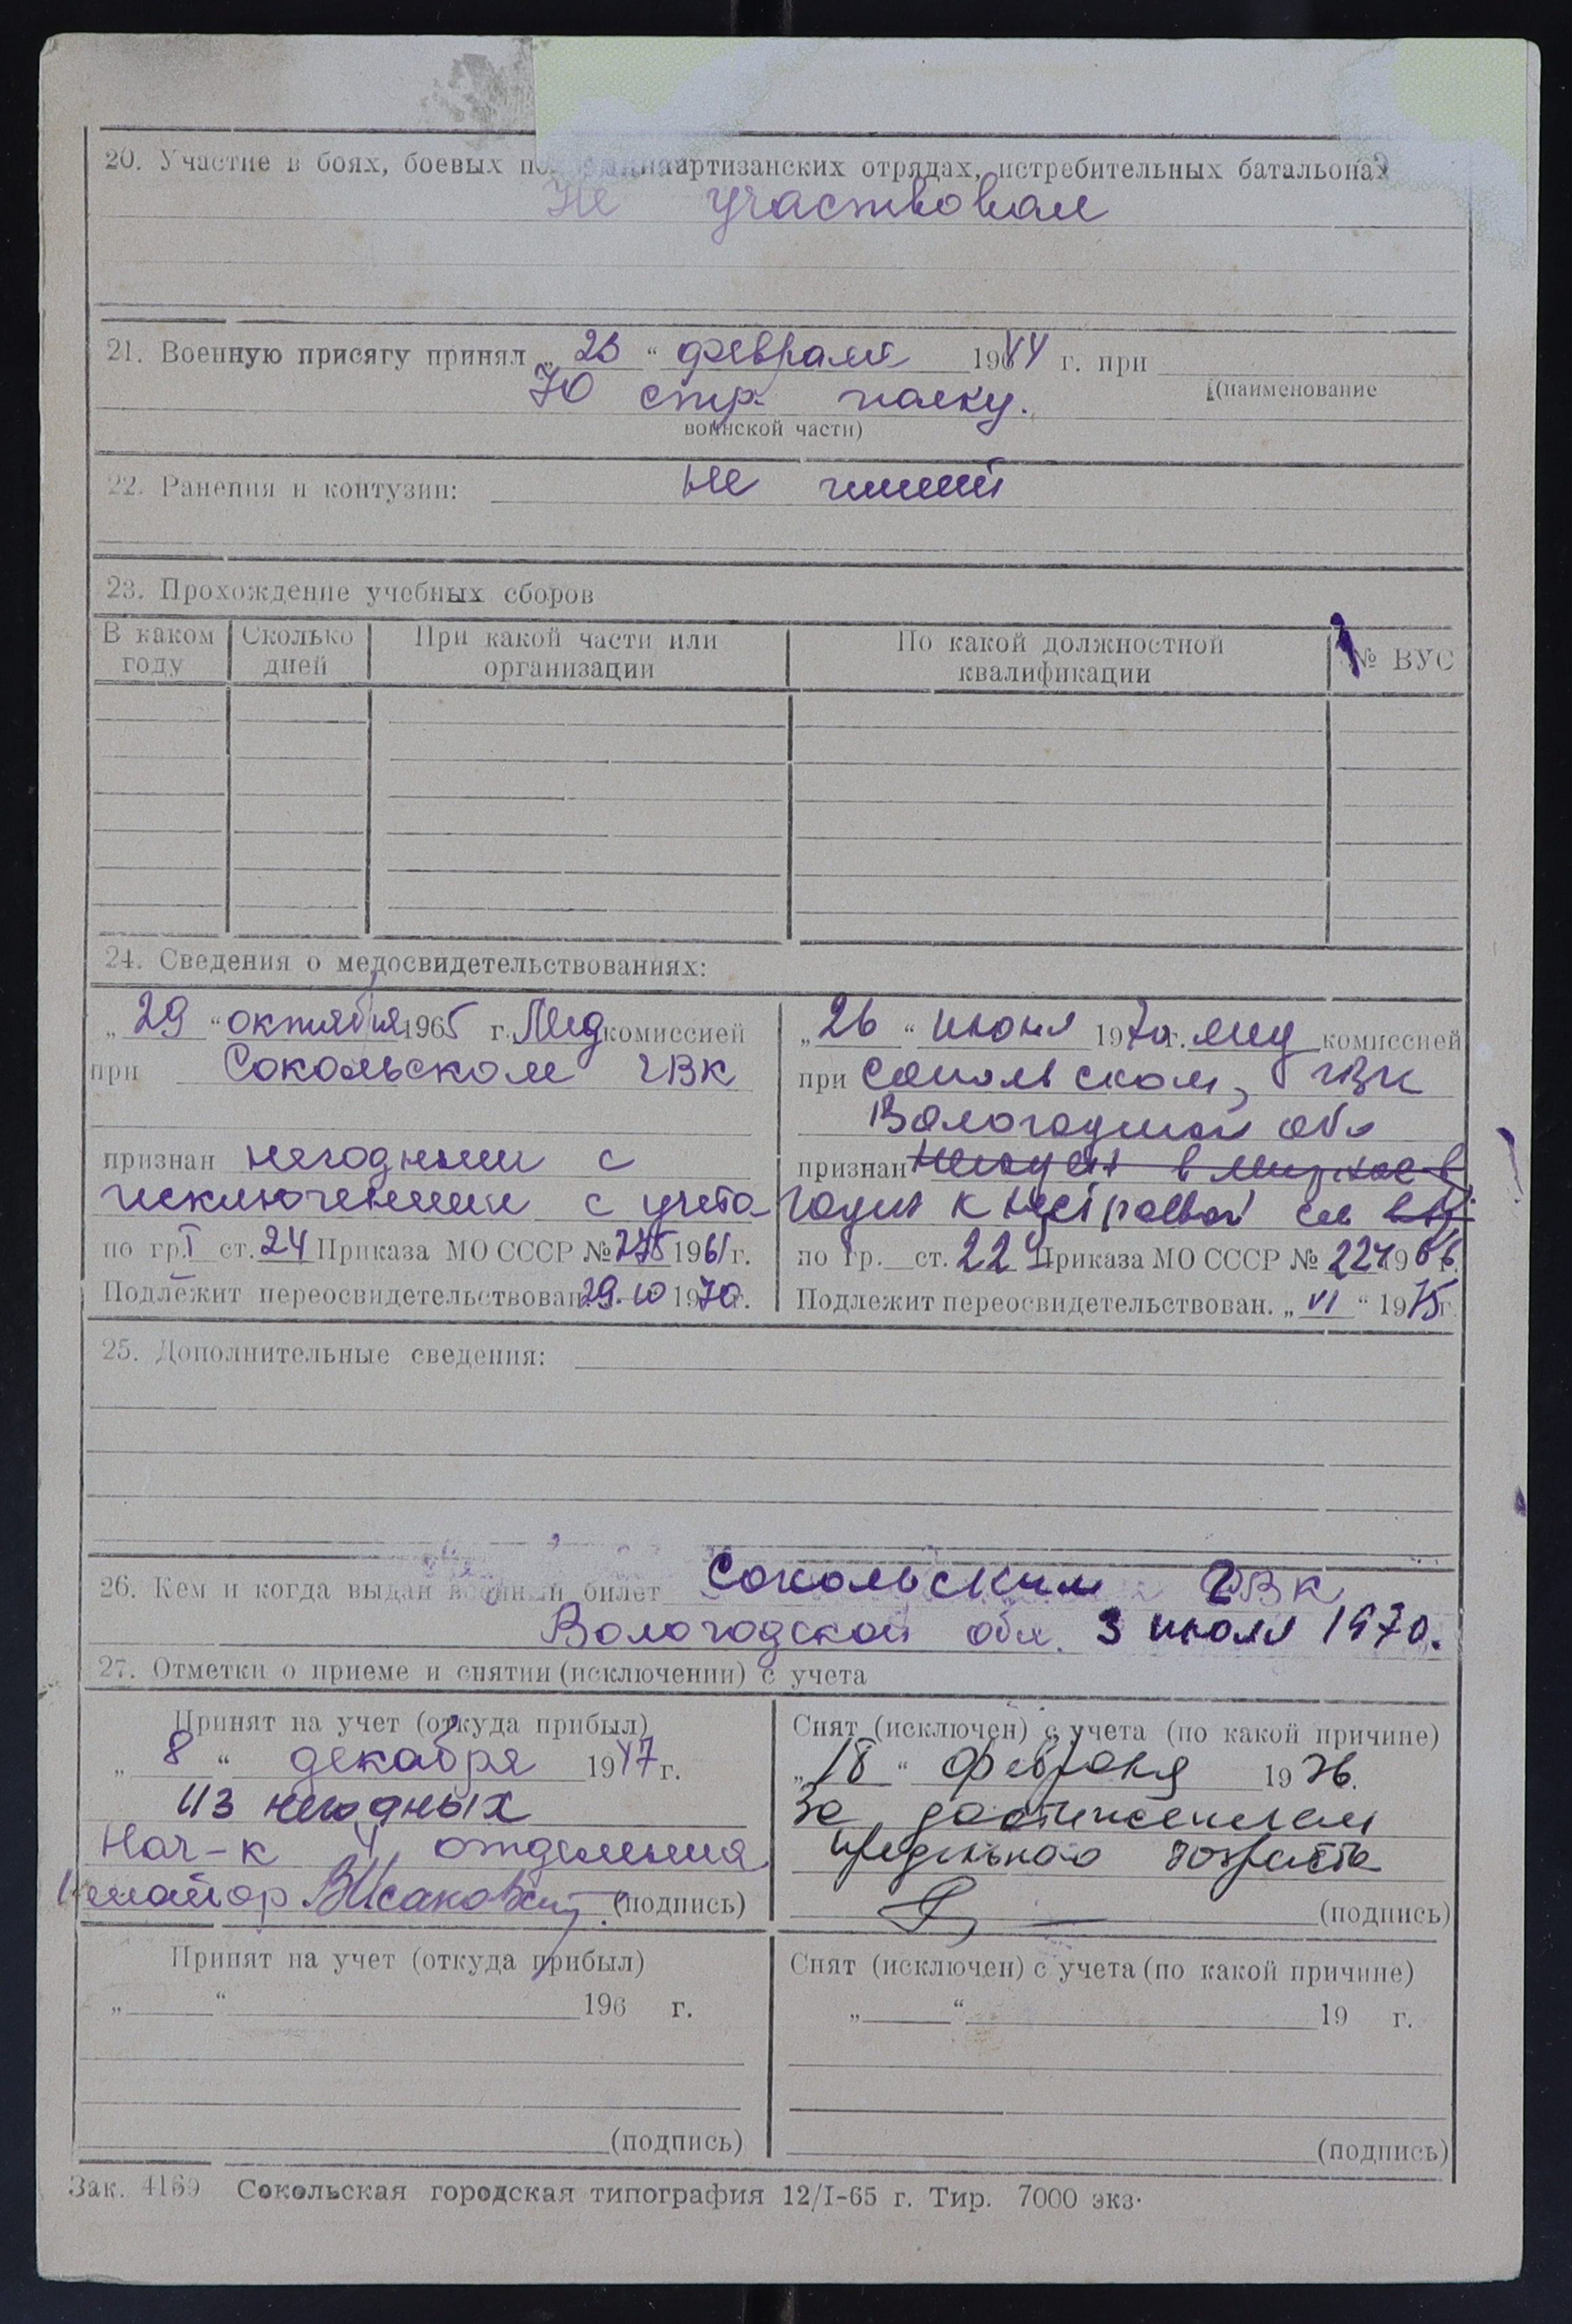 20. Участие в боях, боевых по артизанских отрядах, истребительных батальонах
Не участвовал
21. Военную присягу принял „23“ февраля 1944 г. при
70 стр. полку.
(наименование
воинской части)
22. Ранения и контузии: не имеет
23. Прохождение учебных сборов
В каком году
Сколько дней
При какой части или организации
По какой должностной квалификации
№ ВУС
24. Сведения о медосвидетельствованиях:
„29“ октября 1965 г. Мед комиссией
при Сокольском ГВК
признан негодным с
исключением с учета
по гр. I ст. 24 Приказа МО СССР № 275 1961 г.
Подлежит переосвидетельствован. 29.10 1970 г.
„26“ июня 1970 г. мед комиссией
при Сокольском ГВК
Вологодской обл
признан
годен к нестроевой сл
по гр. ст. 22 Приказа МО СССР № 224 1966 г.
Подлежит переосвидетельствован. „VI“ 1975 г.
25. Дополнительные сведения:
26. Кем и когда выдан военный билет Сокольским ГВК
Вологодской обл. 3 июля 1970.
27. Отметки о приеме и снятии (исключении) с учета
Принят на учет (откуда прибыл)
„8“ декабря 1947 г.
из негодных
Нач-к 4 отделения
майор (подпись)
Снят (исключен) с учета (по какой причине)
„18“ февраля 1976.
За достижением
предельного возраста
(подпись)
Принят на учет (откуда прибыл)
„ “ 196 г.
(подпись)
Снят (исключен) с учета (по какой причине)
„ “ 19 г.
(подпись)
Зак. 4169 Сокольская городская типография 12/I-65 г. Тир. 7000 экз.